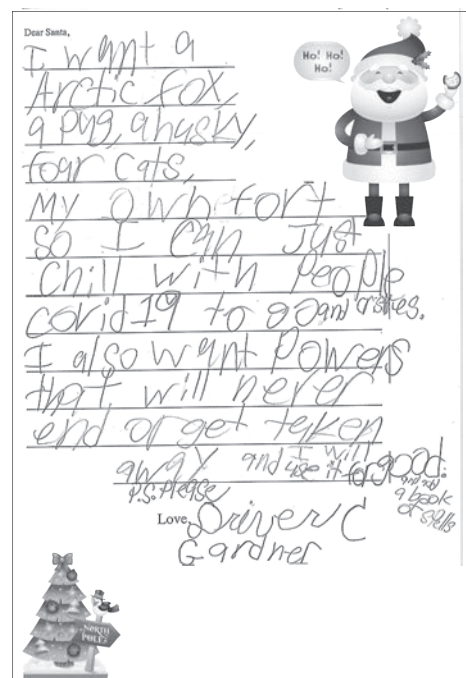 Dear Santa,
Ho! Ho!
Ho!
I want a
Arctic fox,
a pug, a husky,
four cats,
my own fort
so I can just
chill with people
covid 19 to go and
I also want Powers
that will never
end or get taken
away and I will
and use it for good.
P.S. Please
and
a book
of spells
Love, Driver C
Gardner
NORTH
POLE